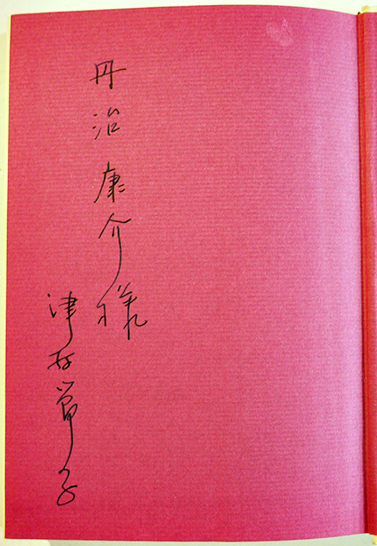 丹治康介様
津村節子